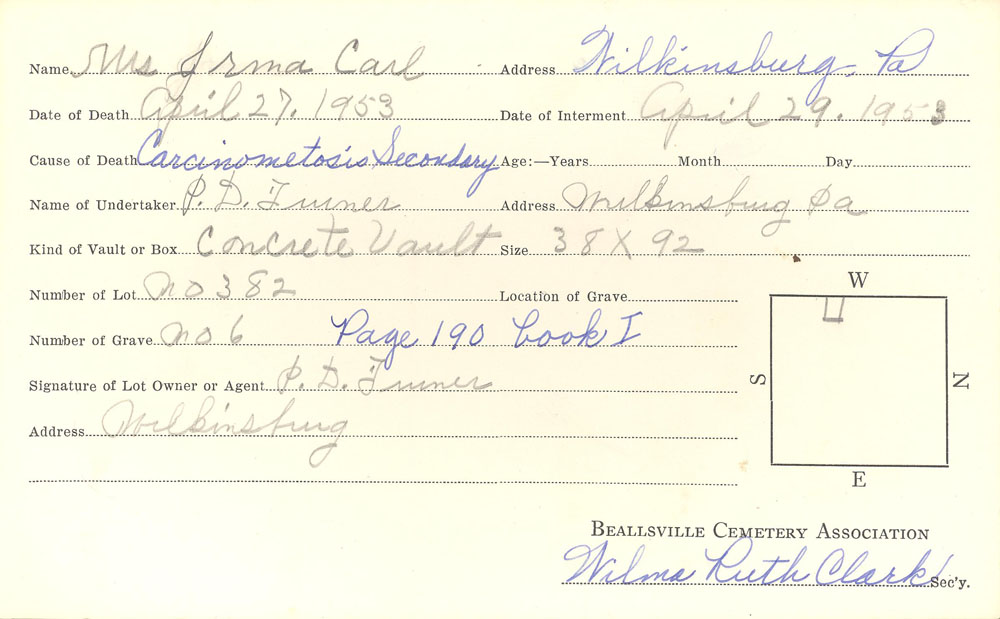 Name Mrs Irma Carl Address Wilkinsburg, Pa
Date of Death April 27, 1953 Date of Interment April 29, 1953
Cause of Death Carcinometosis Secondary Age:—Years Month Day
Name of Undertaker P. D. Turner Address Wilkinsburg Pa
Kind of Vault or Box Concrete Vault Size 38 X 92
Number of Lot No 382 Location of Grave
Number of Grave No 6 Page 190 book I
Signature of Lot Owner or Agent P. D. Turner
Address Wilkinsburg
W
S
N
E
BEALLSVILLE CEMETERY ASSOCIATION
Wilma Ruth Clark Sec'y.